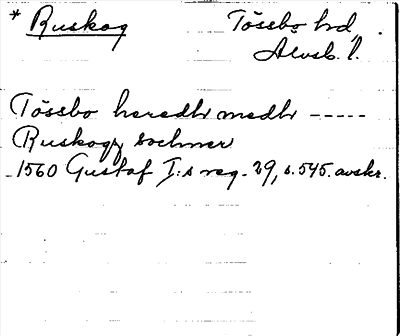 * Ruskog Tössbo hd,
Älvsb. l.
Tössbo heredh medh -----
Ruskogx sochner
1560 Gustaf I:s reg. 29, s. 545. avskr.